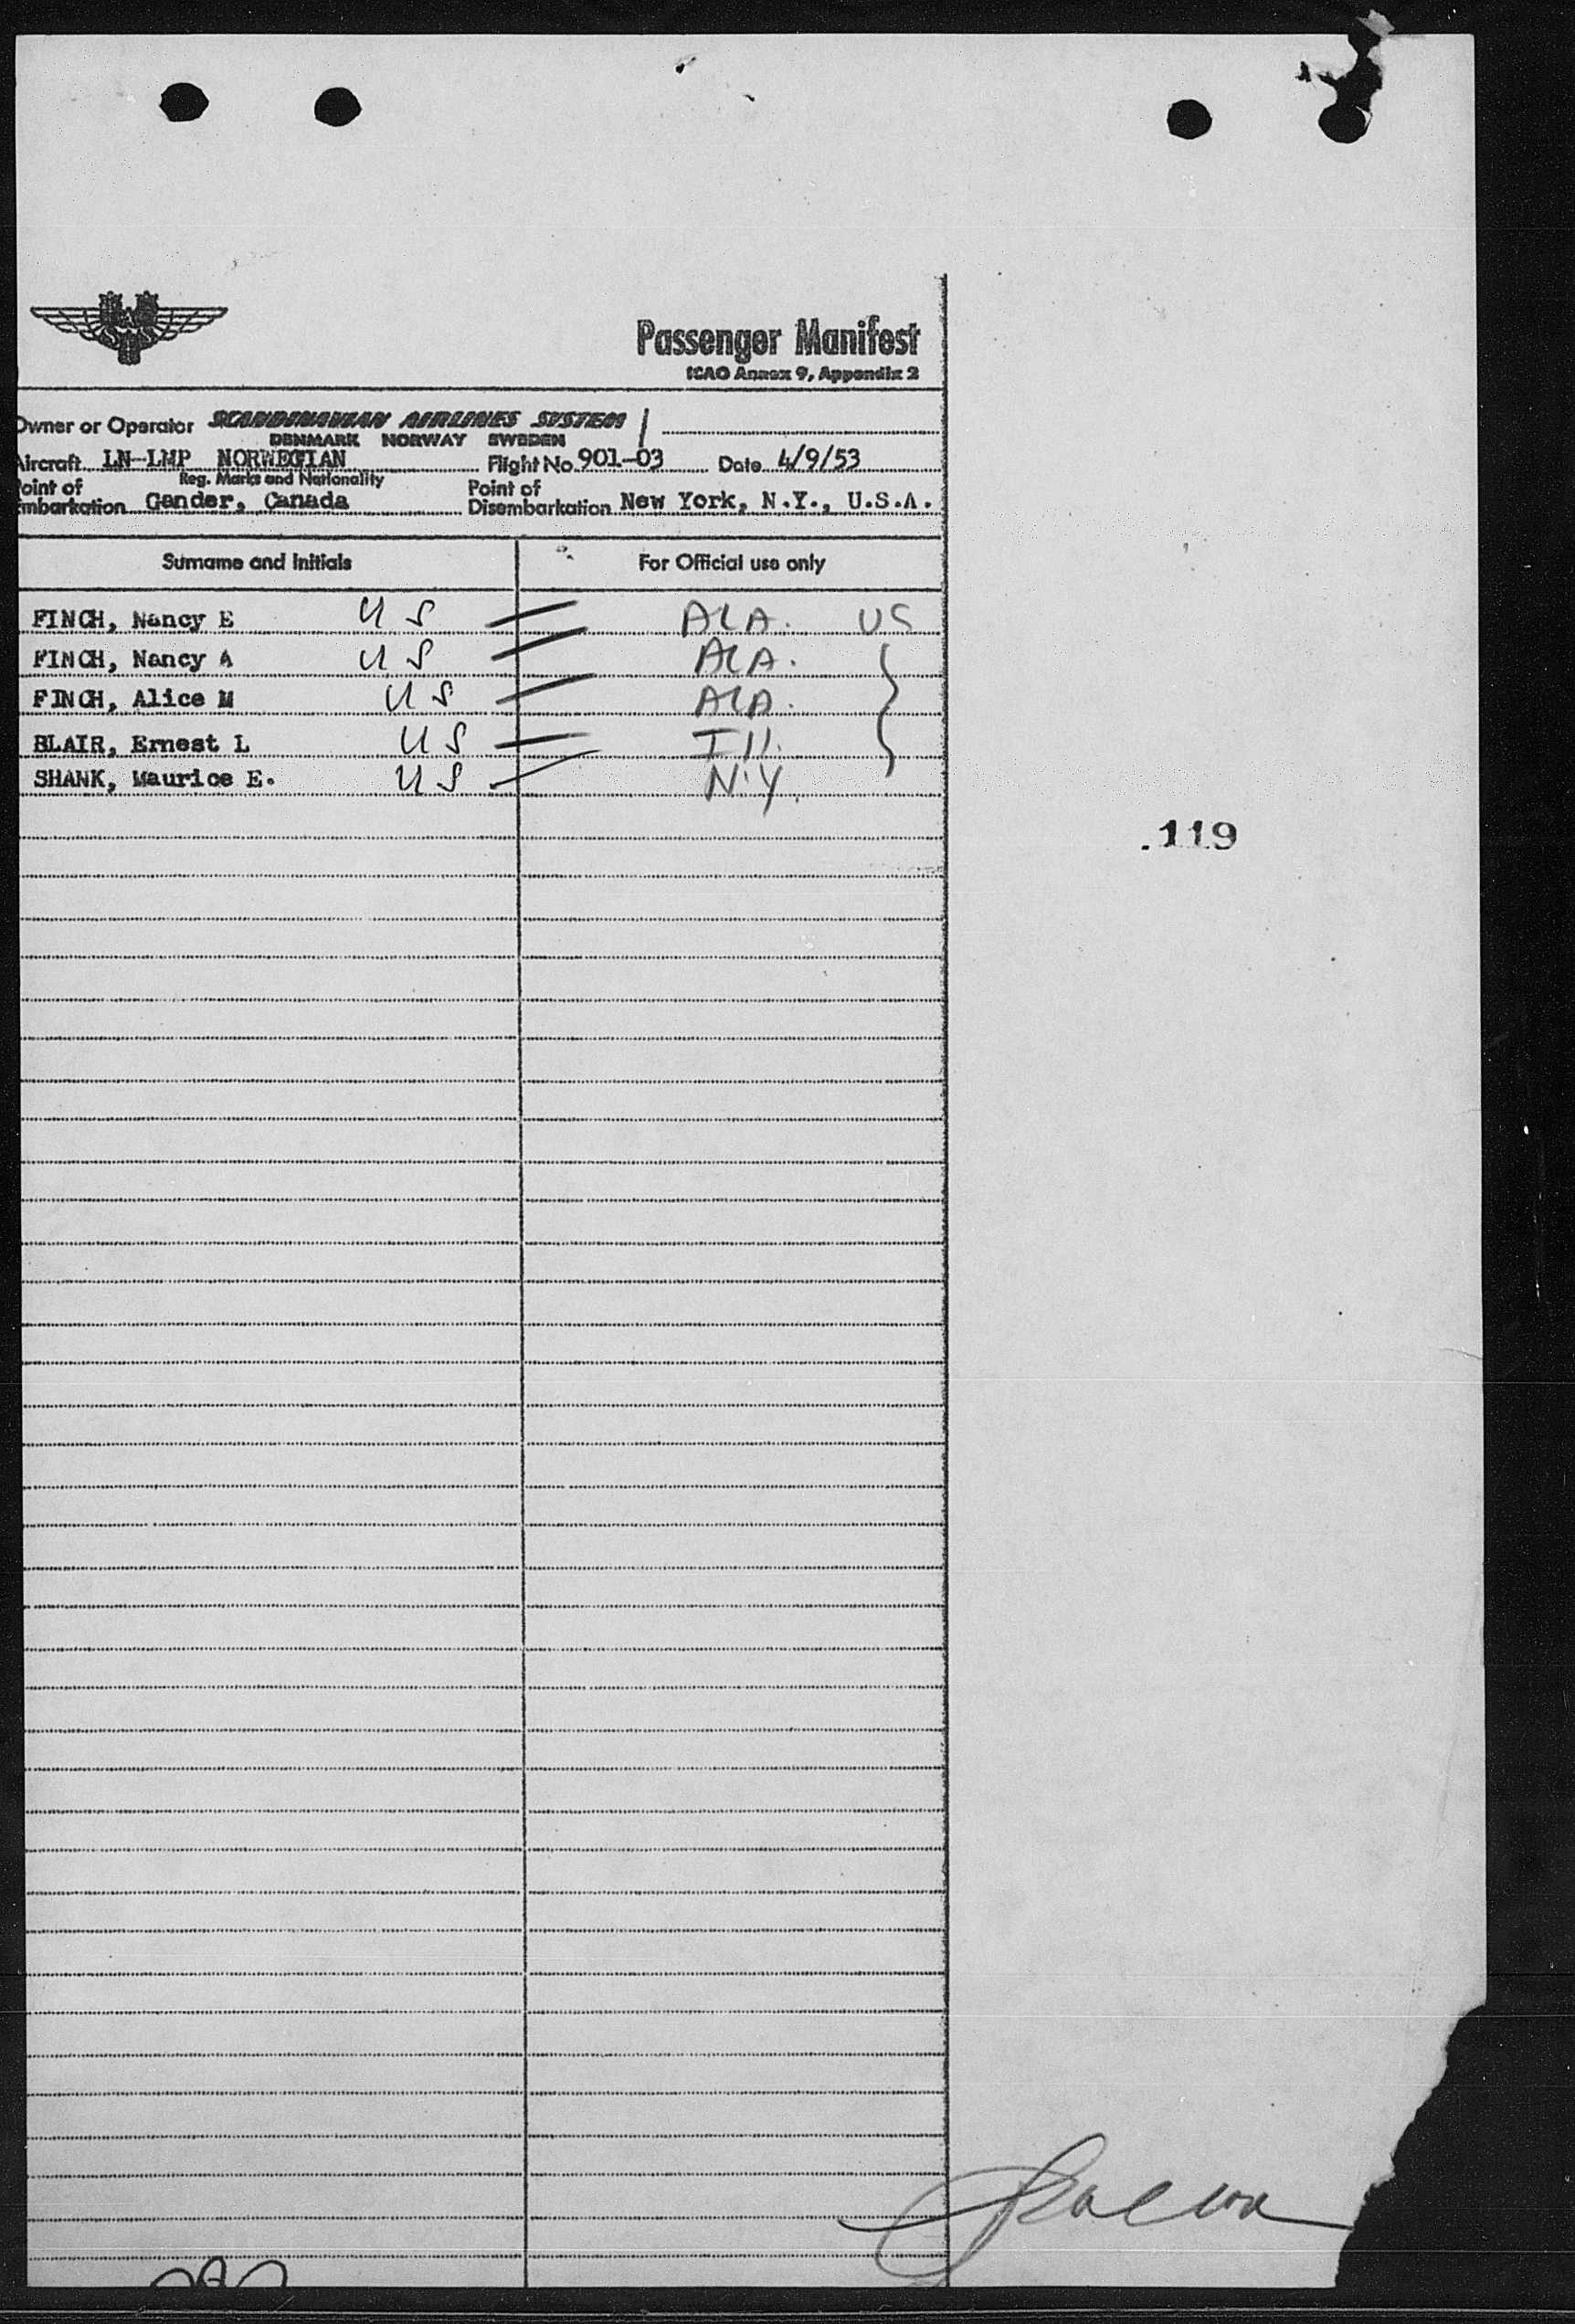 SAS
Passenger Manifest
ICAO Annex 9, Appendix 2
Owner or Operator SCANDINAVIAN AIRLINES SYSTEM
DENMARK NORWAY SWEDEN
Aircraft LN-LMP NORWEGIAN Flight No. 901-03 Date 4/9/53
Reg. Marks and Nationality
Point of Embarkation Gander, Canada Point of Disembarkation New York, N.Y., U.S.A.
Surname and Initials For Official use only
FINCH, Nancy E US ALA. US
FINCH, Nancy A US ALA.
FINCH, Alice M US ALA.
BLAIR, Ernest L US Ill.
SHANK, Maurice E. US N.Y.
119